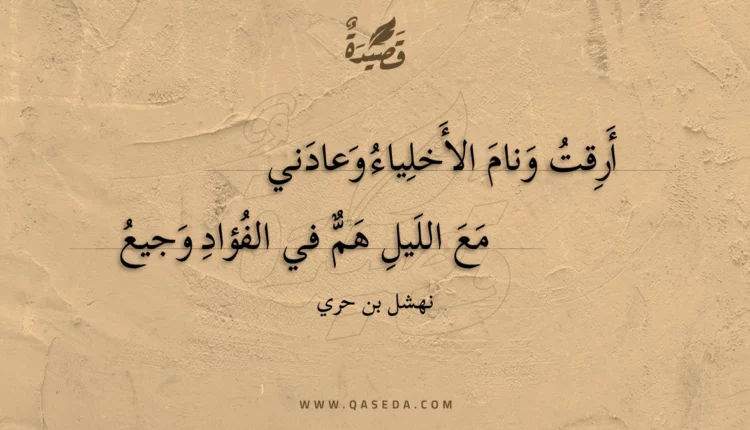 قَصِيدَةٌ
أَرِقتُ وَنامَ الأَخلِياءُ وَعادَني
مَعَ اللَيلِ هَمٌّ في الفُؤادِ وَجيعُ
نهشل بن حري
WWW.QASEDA.COM